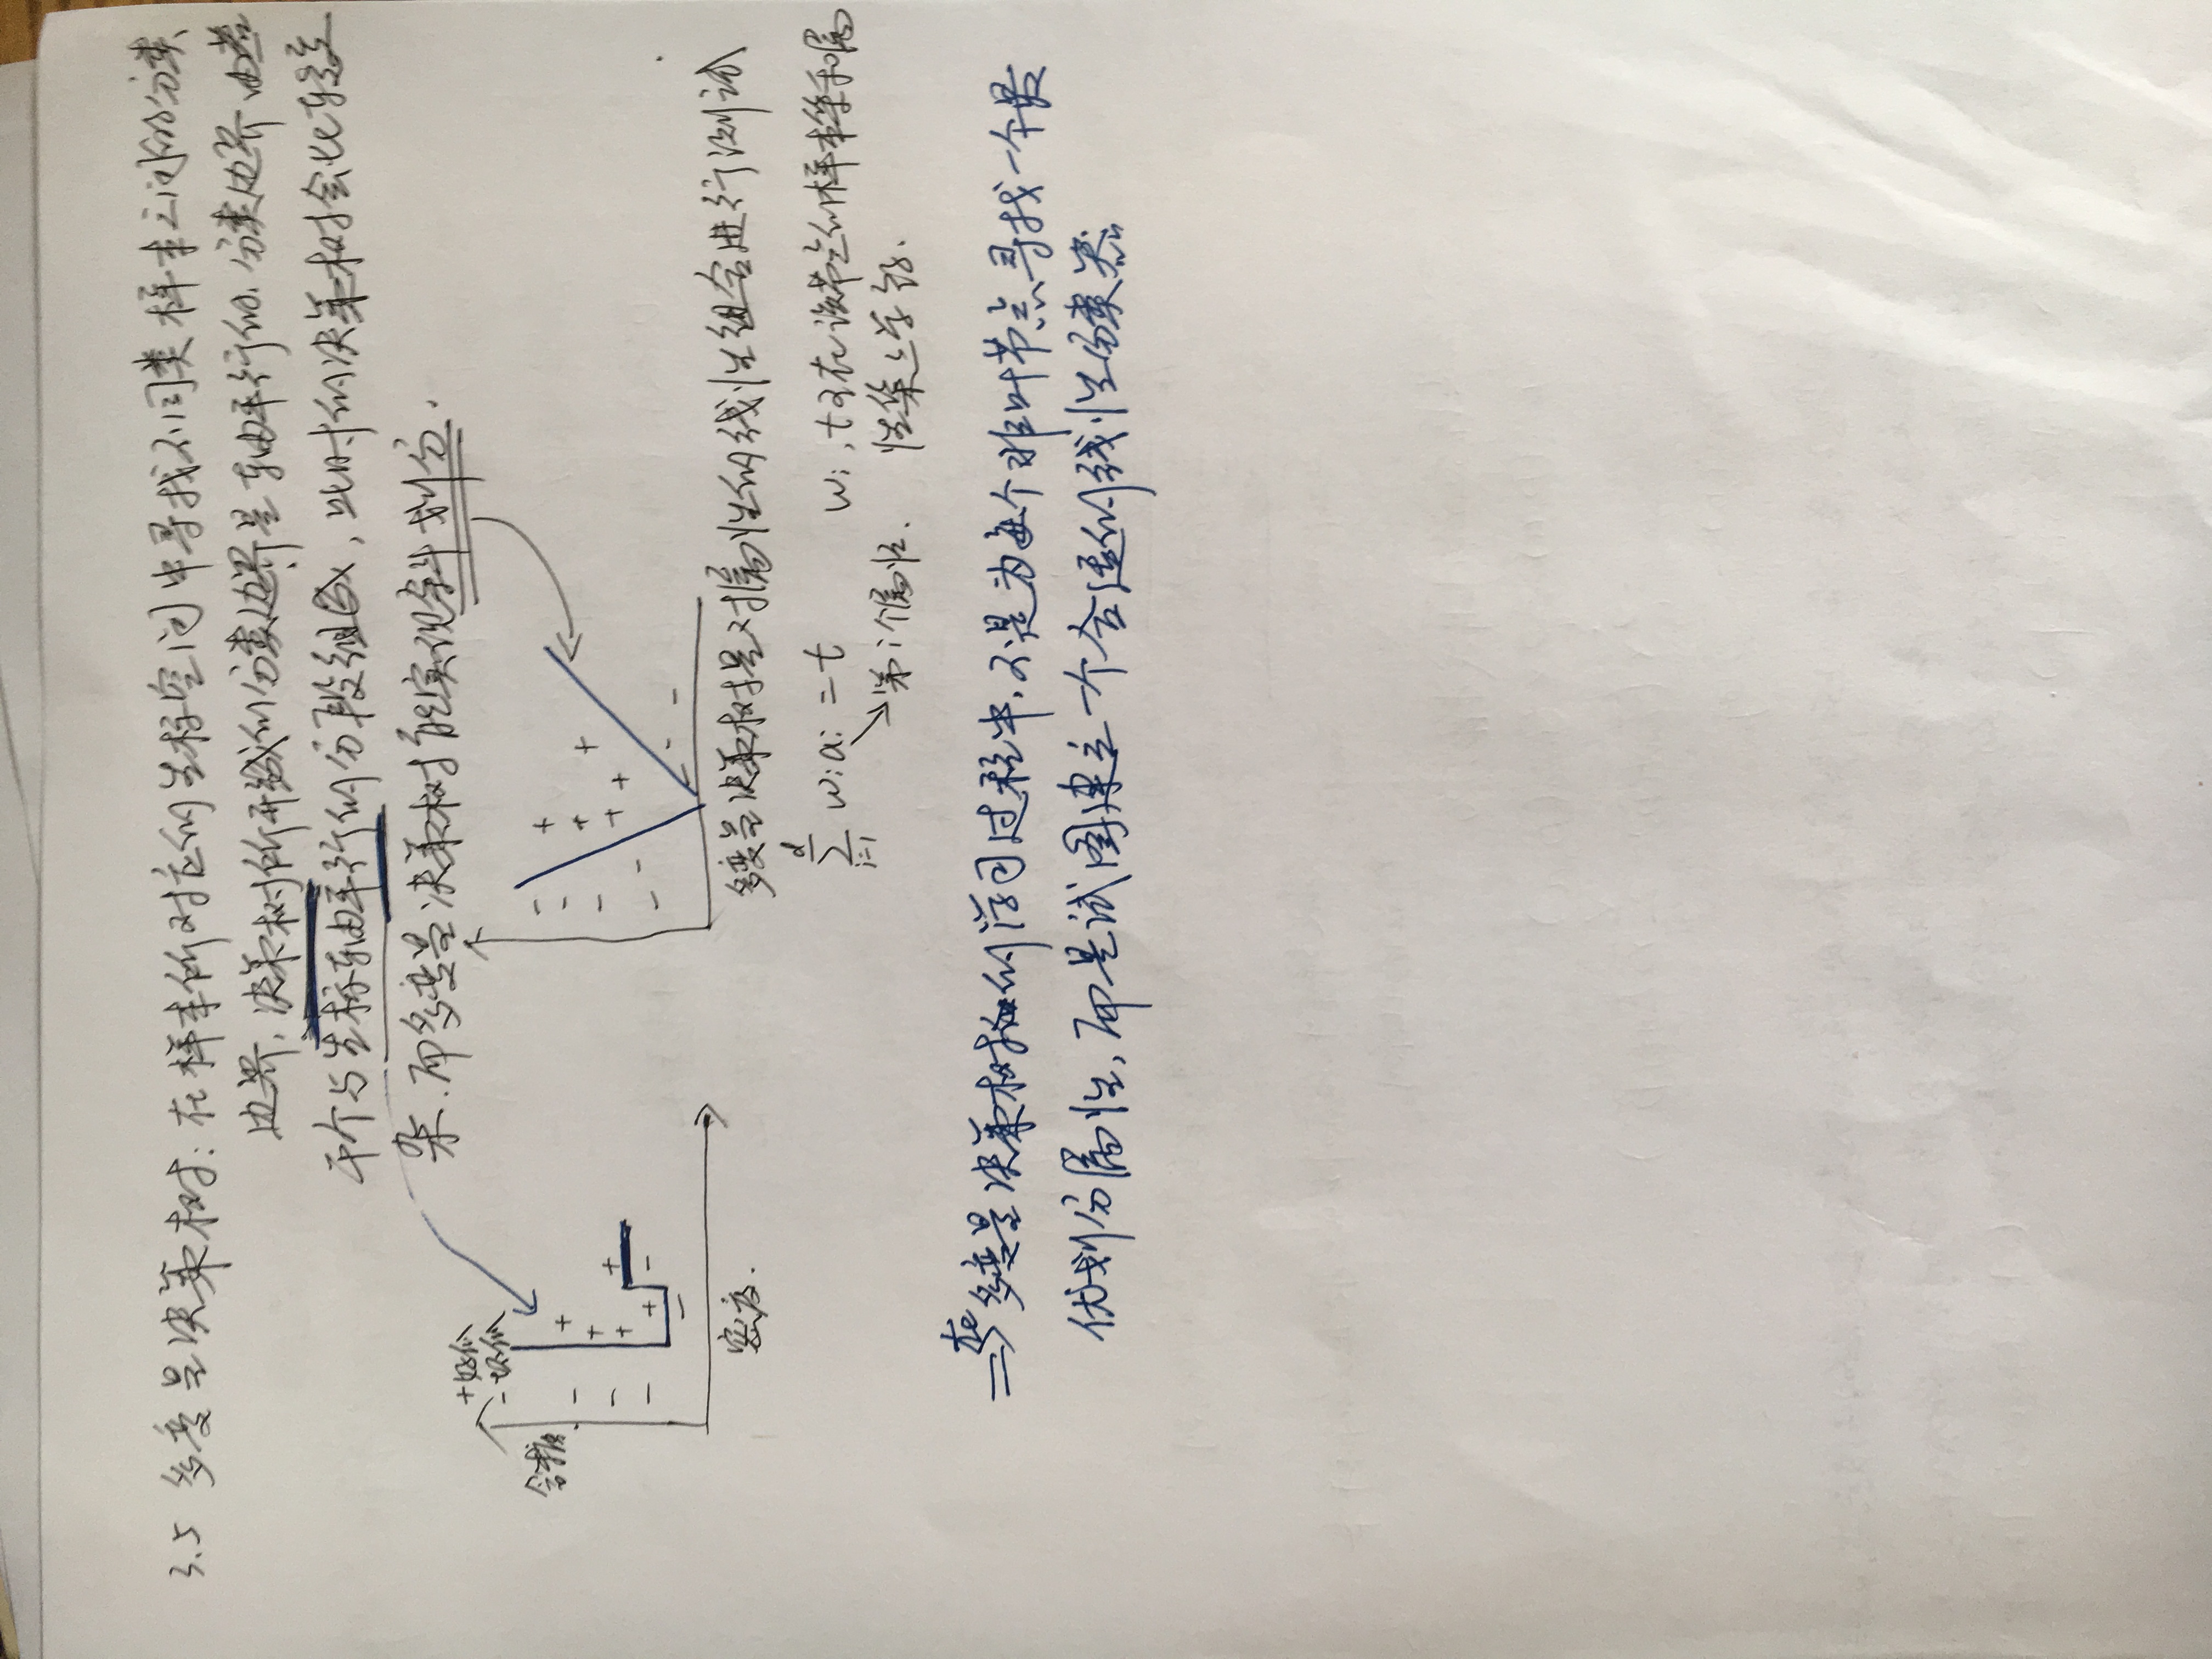 3.5 多变量决策树：在样本所对应的坐标空间中寻找不同类样本之间的分类
边界，决策树所形成的分类边界是轴平行的，分类边界由若
干个与坐标轴平行的分段组成，此时的决策树会比较复
杂，而多变量决策树能实现斜划分.
+好瓜
-坏瓜
含糖
密度.
多变量决策树是对属性的线性组合进行测试
∑_{i=1}^{d} wᵢaᵢ = t wᵢ,t可在该节点的样本集和属
第i个属性. 性集上学的.
⇒在多变量决策树的学习过程中，不是为每个非叶节点寻找一个最
优划分属性，而是试图建立一个合适的线性分类器